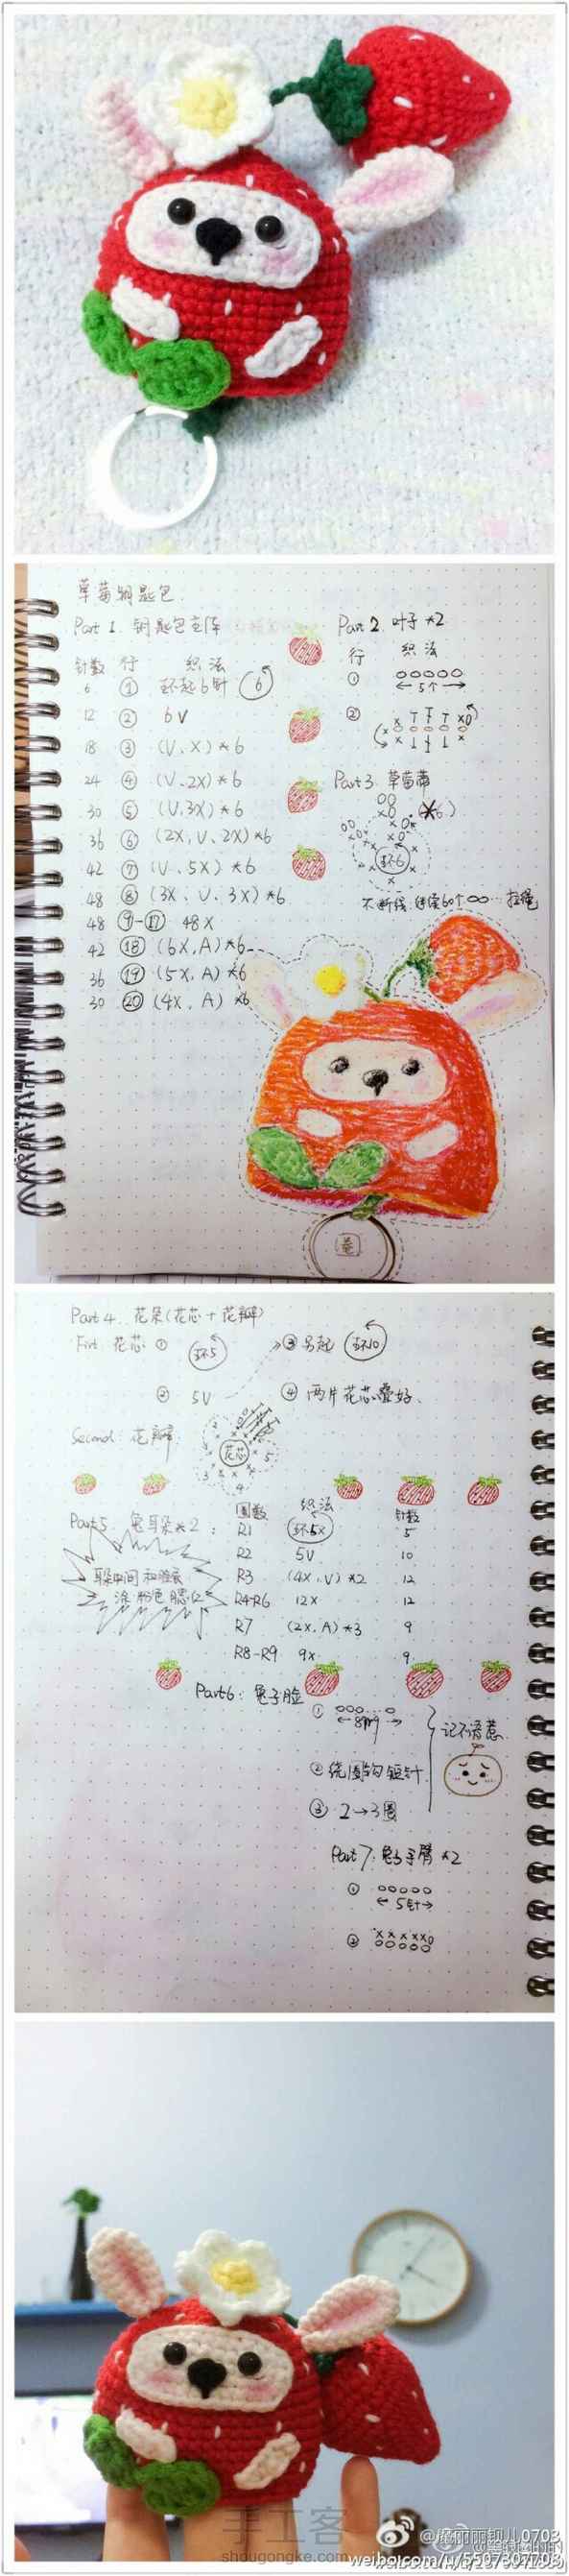 草莓钥匙包
Part 1. 钥匙包主体
针数 行 织法
6 ① 环起6针 6
12 ② 6V
18 ③ (V、X)*6
24 ④ (V、2X)*6
30 ⑤ (V、3X)*6
36 ⑥ (2X、V、2X)*6
42 ⑦ (V、5X)*6
48 ⑧ (3X、V、3X)*6
48 ⑨-⑰ 48X
42 ⑱ (6X、A)*6
36 ⑲ (5X、A)*6
30 ⑳ (4X、A)*6
Part 2. 叶子*2
行 织法
① ooooo
←5个→
②
Part 3. 草莓蒂
环6
不断线 继续60个oo… 拉绳
Part 4. 花朵(花芯+花瓣)
First 花芯 ① 环5
② 5V
③ 另起 环10
④ 两片花芯叠好、
Second: 花瓣
花芯
3 4 5
Part 5. 兔耳朵*2:
圈数 织法 针数
R1 环5X 5
R2 5V 10
R3 (4X、V)*2 12
R4-R6 12X 12
R7 (2X、A)*3 9
R8-R9 9X 9
耳朵中间和脸底
涂粉色腮红
Part 6: 兔子脸
①
②绕圈钩短针
③ 2→3圈
记不清惹
Part 7: 兔子手臂*2
① ooooo
←5针→
② xxxxxo
ooooo
手工客
shougongke.com
weibo.com/u/5507307703